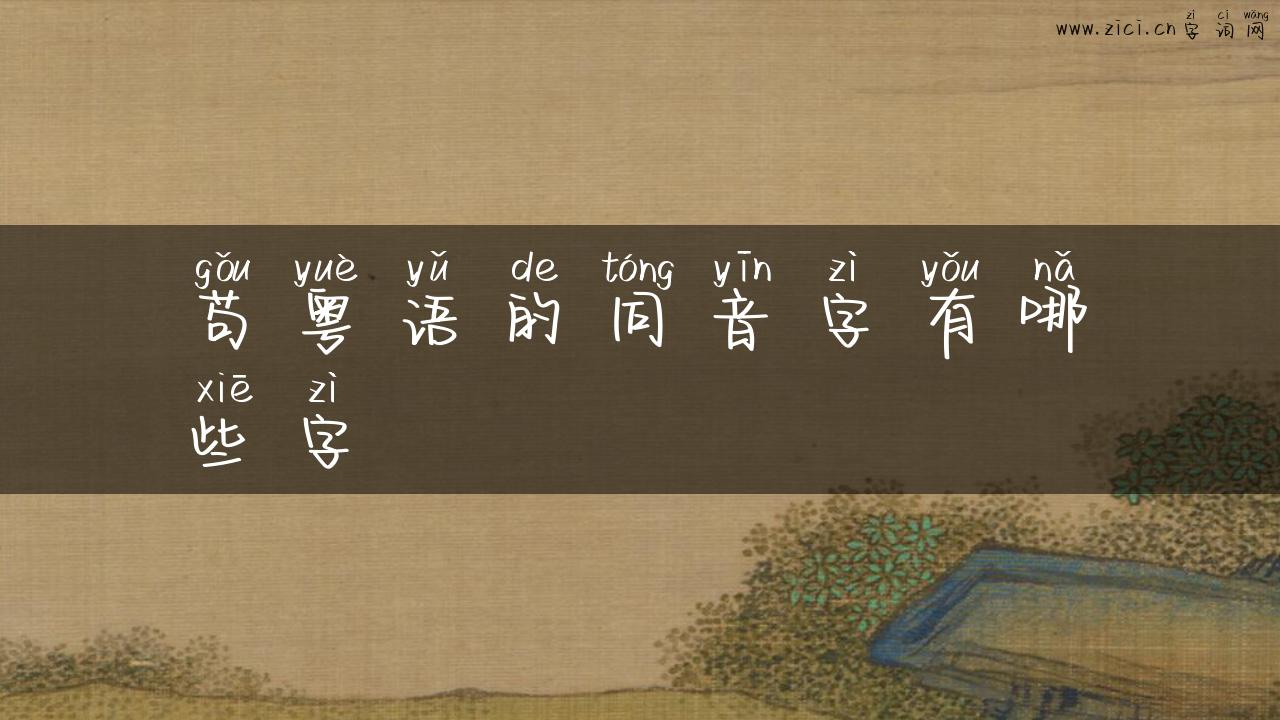 zì cí wǎng
www.zici.cn 字 词 网
gǒu yuè yǔ de tóng yīn zì yǒu nǎ
苟 粤 语 的 同 音 字 有 哪
xiē zì
些 字